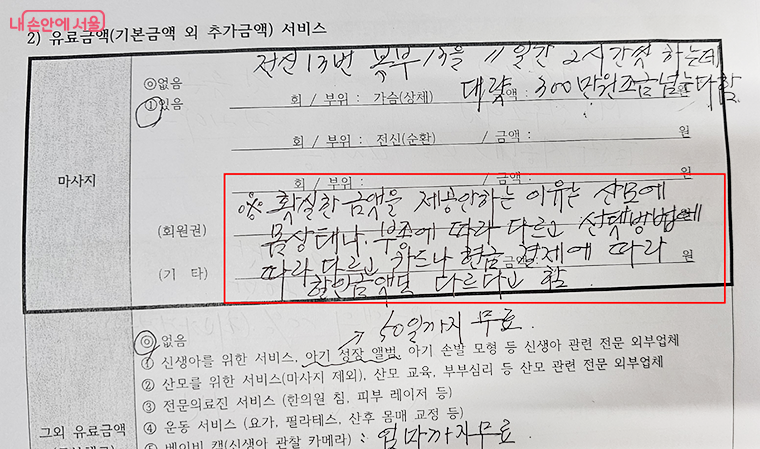 내 손안에 서울
2) 유료금액(기본금액 외 추가금액) 서비스
전신 13번 복부 13을 11일간 2시간씩 하는데
◎없음
대략 300만원 조금 넘는다함.
①있음 회 / 부위 : 가슴(상체) 금액 :
회 / 부위 : 전신(순환) / 금액 : 원
마사지
회 / 부위 : / 금액 : 원
※ 확실한 금액을 제공안하는 이유는 산모에
(회원권) 몸상태나, 부종에 따라 다르고 선택방법에
따라 다르고 카드나 현금 결제에 따라
(기 타) 금액 원
할인금액도 다르다고 함.
→ 50일까지 무료.
◎없음
① 신생아를 위한 서비스, 아기 성장 앨범, 아기 손발 모형 등 신생아 관련 전문 외부업체
② 산모를 위한 서비스(마사지 제외), 산모 교육, 부부심리 등 산모 관련 전문 외부업체
③ 전문의료진 서비스 (한의원 침, 피부 레이저 등)
그외 유료금액
④ 운동 서비스 (요가, 필라테스, 산후 몸매 교정 등)
⑤ 베이비 캠(신생아 관찰 카메라) : 엄마까지무료.